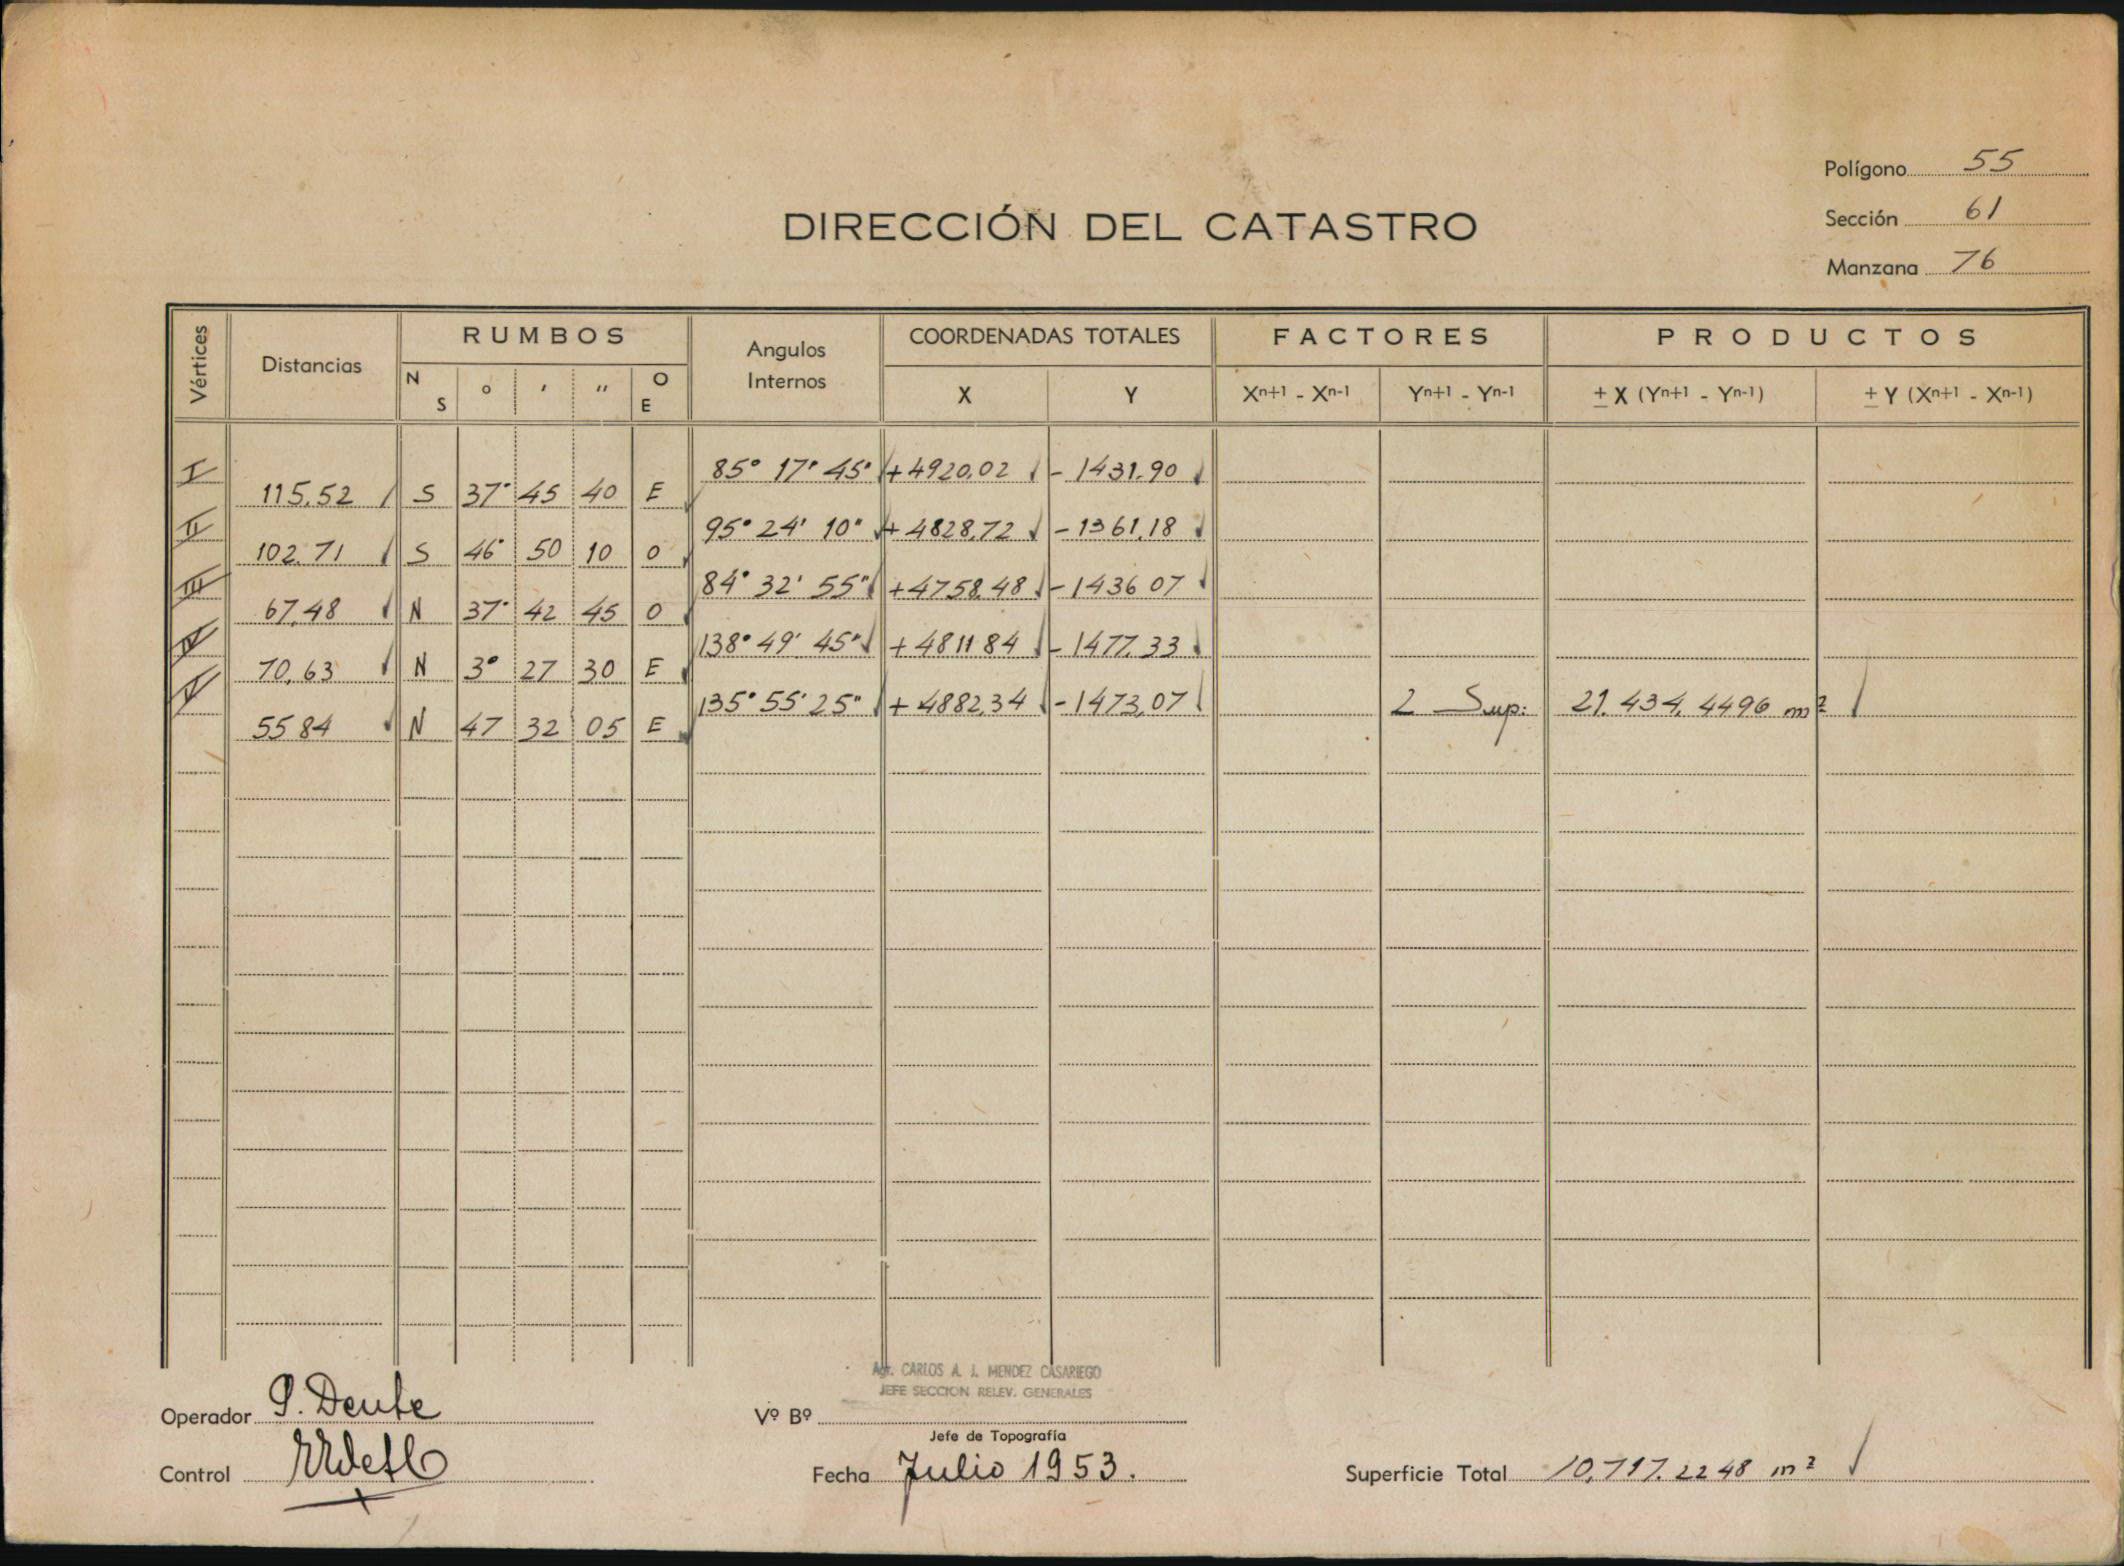 Polígono 55
DIRECCIÓN DEL CATASTRO
Sección 61
Manzana 76
Vértices Distancias RUMBOS Angulos Internos COORDENADAS TOTALES FACTORES PRODUCTOS
N S ° ' '' O E X Y Xn+1 - Xn-1 Yn+1 - Yn-1 ± X (Yn+1 - Yn-1) ± Y (Xn+1 - Xn-1)
I 85° 17' 45" +4920,02 - 1431.90
115,52 S 37° 45 40 E
II 95° 24' 10" + 4828,72 - 1361,18
102.71 S 46° 50 10 O
III 84° 32' 55" +4758.48 - 1436 07
67,48 N 37° 42 45 O
IV 138° 49' 45" + 4811 84 - 1477.33
70,63 N 3° 27 30 E
V 135° 55' 25" + 4882,34 - 1473,07 2 Sup: 21.434,4496 m²
55 84 N 47 32 05 E
Agr. CARLOS A. J. MENDEZ CASARIEGO
JEFE SECCION RELEV. GENERALES
Operador
Vº Bº
Jefe de Topografía
Control
Fecha Julio 1953.
Superficie Total 10,717.2248 m²